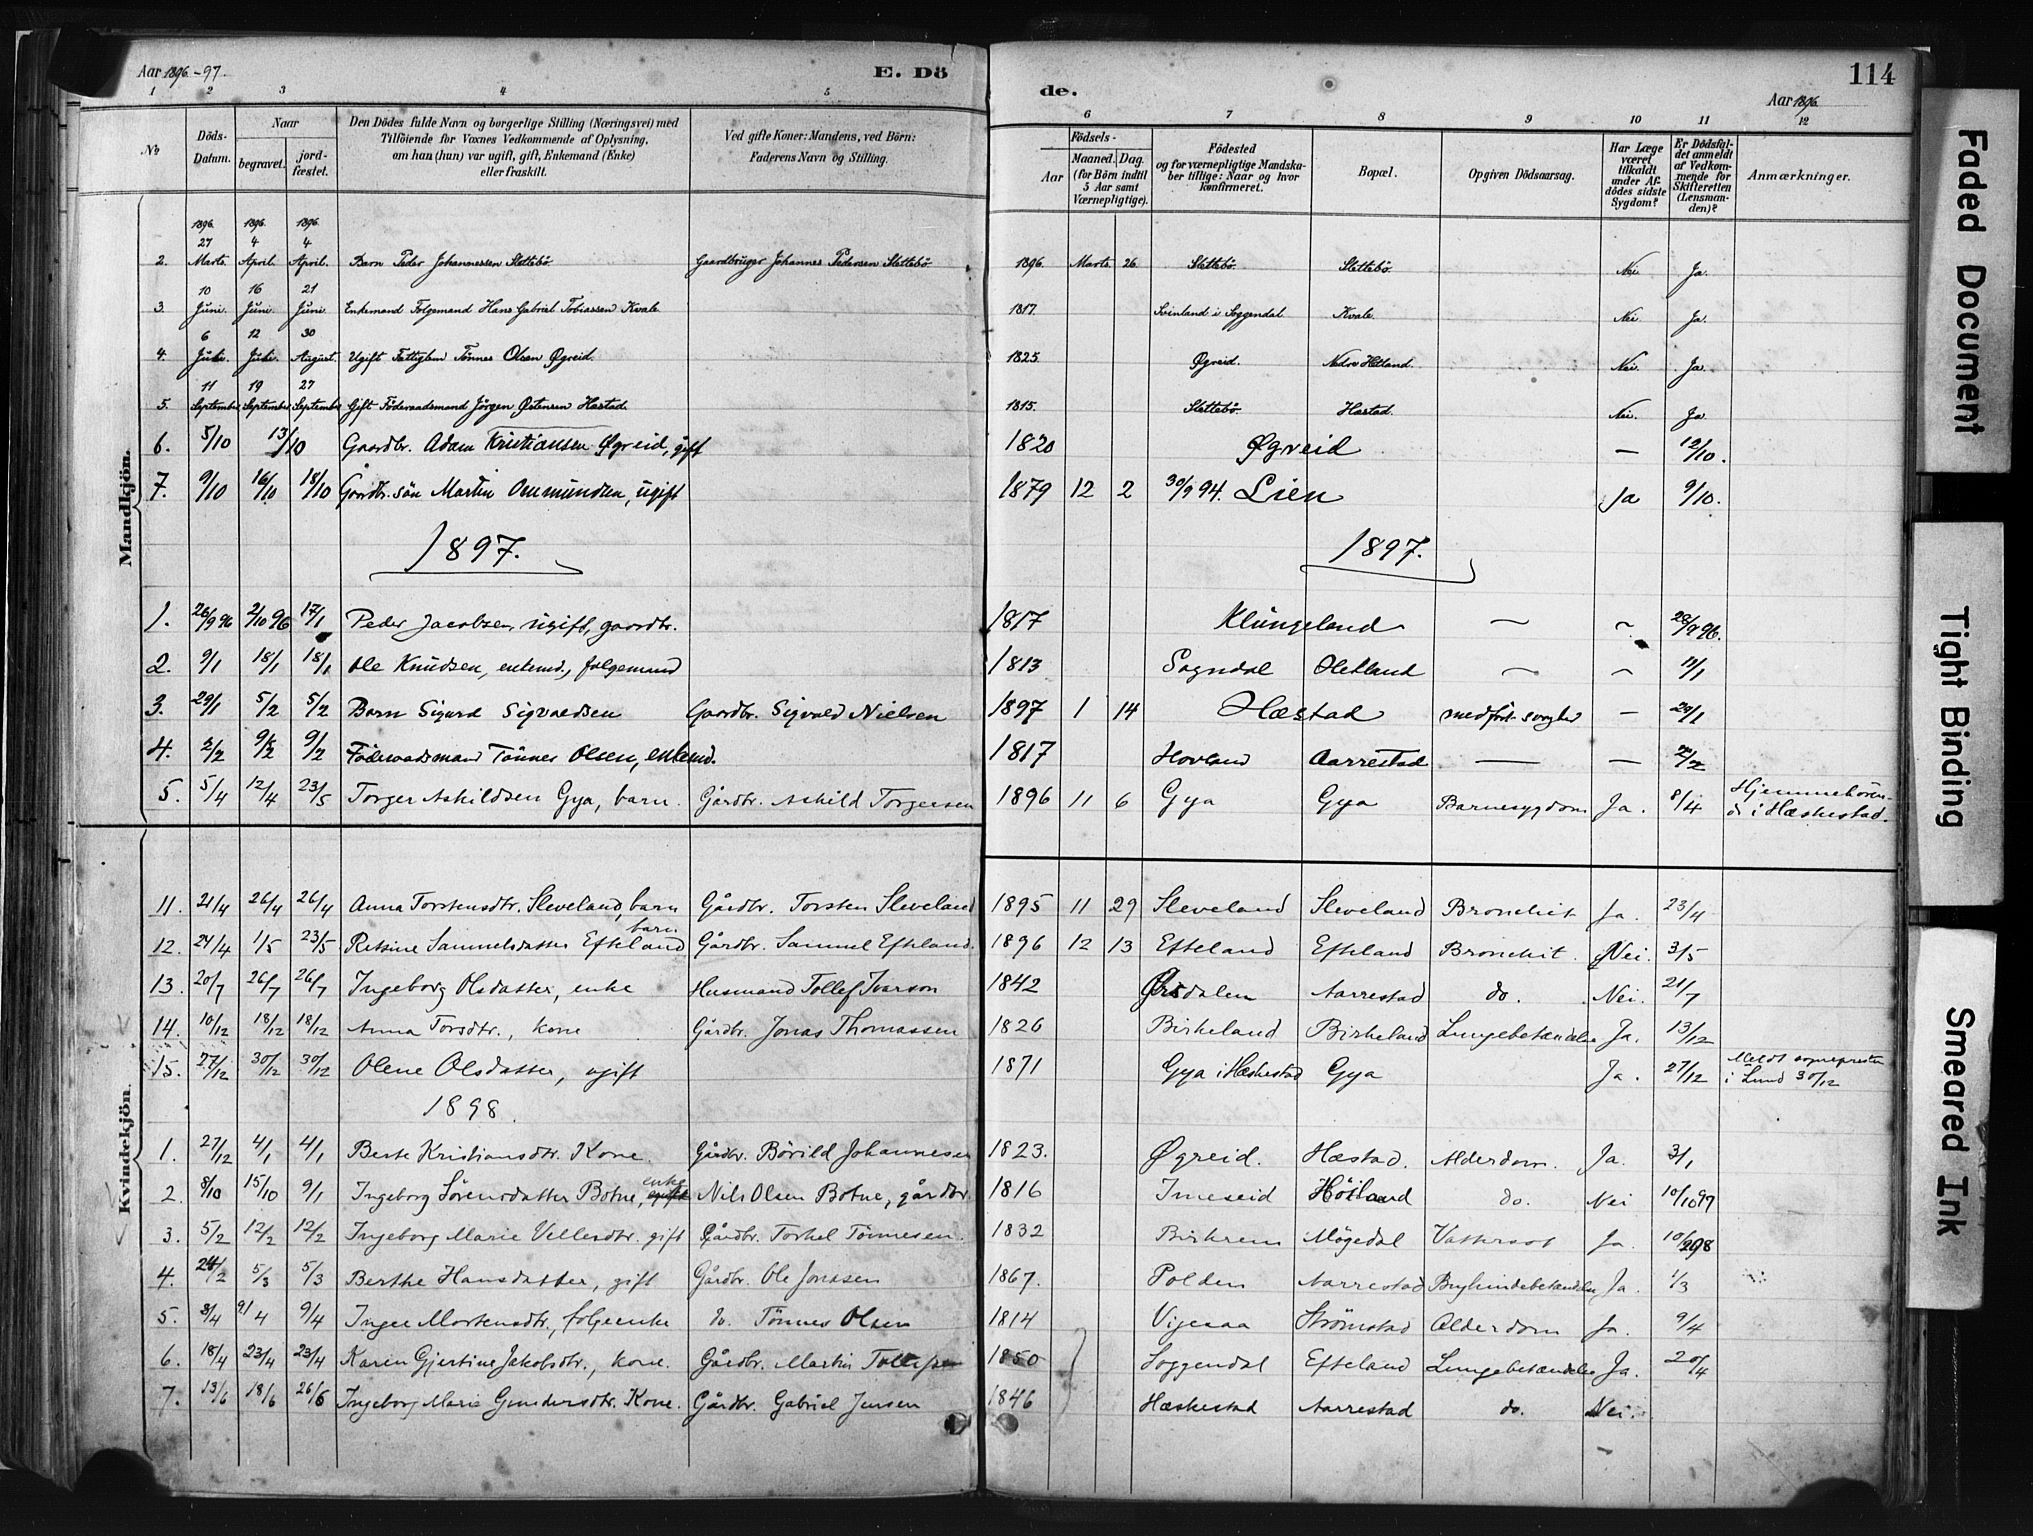 Aar 1896-97. E. Dö
de. 114
Aar 1896.
1 2 3 4 5 6 7 8 9 10 11 12
№ Döds-Datum. Naar begravet. jordfæstet. Den Dödes fulde Navn og borgerlige Stilling (Næringsvei) med Tilföiende for Voxnes Vedkommende af Oplysning, om han (hun) var ugift, gift, Enkemand (Enke) eller fraskilt. Ved gifte Koner: Mandens, ved Börn: Faderens Navn og Stilling.
Födsels- Aar Maaned. Dag. (for Börn indtil 5 Aar samt Værnepligtige). Födested og for værnepligtige Mandskaber tillige: Naar og hvor konfirmeret. Bopæl. Opgiven Dödsaarsag. Har Læge været tilkaldt under Afdödes sidste Sygdom? Er Dödsfaldet anmeldt af Vedkommende for Skifteretten (Lensmanden)? Anmærkninger.
Mandkjön.
1896. 1896. 1896.
2. 27 Marts. 4 April. 4 April. Barn Peder Johannessen Slettebö. Gaardbruger Johannes Pedersen Slettebö. 1896. Marts 26 Slettebö. Slettebö. Nei. Ja.
3. 10 Juni. 16 Juni. 21 Juni. Enkemand Folgemand Hans Gabriel Tobiassen Kvale. 1817. Svinland i Soggendal Kvale. Nei. Ja.
4. 6 Juli. 12 Juli. 30 August. Ugift Fattiglem Tönnes Olsen Øgreid. 1825. Øgreid. Nedre Hetland. Nei. Ja.
5. 11 September 19 September 27 September Gift Föderaadsmand Jörgen Østensen Hæstad. 1815. Slettebö. Hæstad. Nei. Ja.
6. 5/10 13/10 Gaardbr. Adam Kristiansen Øgreid, gift 1820 Øgreid — 12/10.
7. 9/10 16/10 18/10 Gaardbr.sön Martin Ommundsen, ugift 1879 12 2 30/9 94. Lien Ja 9/10.
1897. 1897.
1. 26/9 96 2/10 96 17/1 Peder Jacobsen, ugift, gaardbr. 1817 Klungeland — — 28/9 96.
2. 9/1 18/1 18/1 Ole Knudsen, enkemd., folgemand 1813 Sogndal Hetland — — 11/1
3. 29/1 5/2 5/2 Barn Sigurd Sigvaldsen Gaardbr. Sigvald Nielsen 1897 1 14 Hæstad medfödt svaghed — 29/1
4. 2/2 9/2 9/2 Föderaadsmand Tönnes Olsen, enkemd. 1817 Hovland Aarrestad — — 2/2
5. 5/4 12/4 23/5 Torger Askildsen Gya, barn. Gårdbr. Askild Torgersen 1896 11 6 Gya Gya Barnesygdom Ja. 8/4 Hjemmehören-
de i Hæskestad.
Kvindekjön.
11. 21/4 26/4 26/4 Anna Torstensdtr. Sleveland, barn Gårdbr. Torsten Sleveland 1895 11 29 Sleveland Sleveland Bronchit Ja. 23/4
12. 24/4 1/5 23/5 Rettine Samuelsdatter Efteland barn Gårdbr. Samuel Efteland. 1896 12 13 Efteland Efteland Bronchit. Nei. 3/5
13. 20/7 26/7 26/7 Ingeborg Olsdatter, enke Husmand Tollef Ivarson 1842 Ørsdalen Aarrestad do. Nei. 21/7
14. 10/12 18/12 18/12 Anna Torsdtr., kone Gårdbr. Jonas Thomassen 1826 Birkeland Birkeland Lungebetændelse Ja. 13/12
15. 27/12 30/12 30/12 Olene Olsdatter, ugift 1871 Gya i Hæskestad Gya Ja. 27/12 Meldt sognepresten
i Lund 30/12
1898.
1. 27/12 4/1 4/1 Berte Kristiansdtr. Kone. Gårdbr. Börild Johannesen 1823. Øgreid. Hæstad. Alderdom. Ja. 3/1
2. 8/10 15/10 9/1 Ingeborg Sörensdatter Botne, enke Nils Olsen Botne, gårdbr. 1816 Imeseid Höiland do. Nei 10/10 97
3. 5/2 12/2 12/2 Ingeborg Marie Vellesdtr. gift Gårdbr. Torkel Tönnesen. 1832 Birkrem Mögedal Vattersot Ja. 10/2 98
4. 24/2 5/3 5/3 Berthe Hansdatter, gift Gårdbr. Ole Jonasen 1867. Polden Aarrestad Bryhindebetændelse Ja. 1/3
5. 3/4 9/4 9/4 Inger Mortensdtr, folgeenke do. Tönnes Olsen 1814 Vigesaa Strömstad Alderdom Ja. 9/4
6. 18/4 23/4 23/4 Karen Gjertine Jakobsdtr., kone. Gårdbr. Martin Tollefsen 1850 Soggendal Efteland Lungebetændelse Ja. 20/4
7. 13/6 18/6 26/6 Ingeborg Marie Gundersdtr. Kone. Gårdbr. Gabriel Jensen 1846 Hæskestad Aarrestad do. Nei.
Faded Document
Tight Binding
Smeared Ink